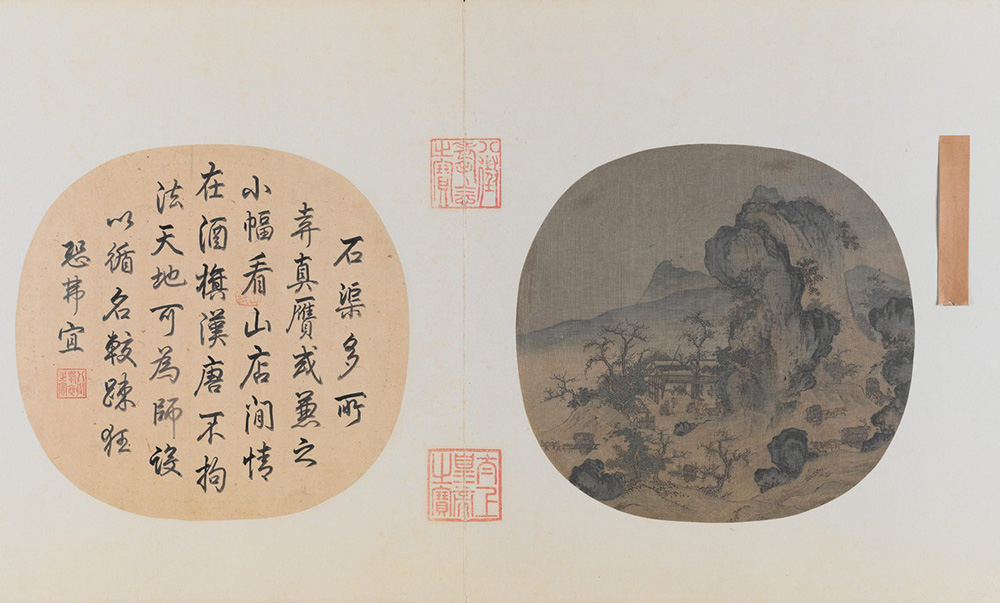 石渠多所
弆真贋或兼之
小幅看山店閒情
在酒旗漢唐不拘
法天地可為師設
以循名較疎狂
恐弗宜
八徵耄念之寶
太上皇帝之寶